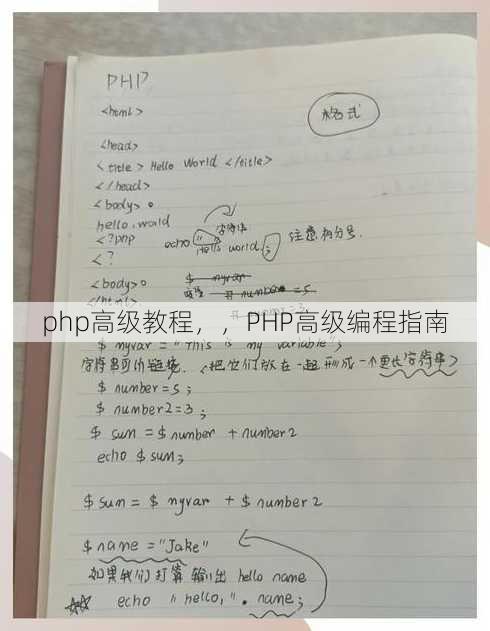 PHP
<html>
格式
<head>
<title> Hello World </title>
</head>
<body>
hello.world
字符串
<?php echo "Hello world; 注意有分号.
<?
<body>
$ myvar
$ number = 5;
</html>
php高级教程，，PHP高级编程指南
$ myvar = "This is my variable";
字符串的链接. (把它们放在一起形成一个更长字符串)
$ number=5;
$ number2=3;
$ sum = $ number + number2
echo $ sum;
$ sum = $ myvar + $ number2
$ name = "Jake"
如果我们打算输出 hello name
echo "hello," . name;